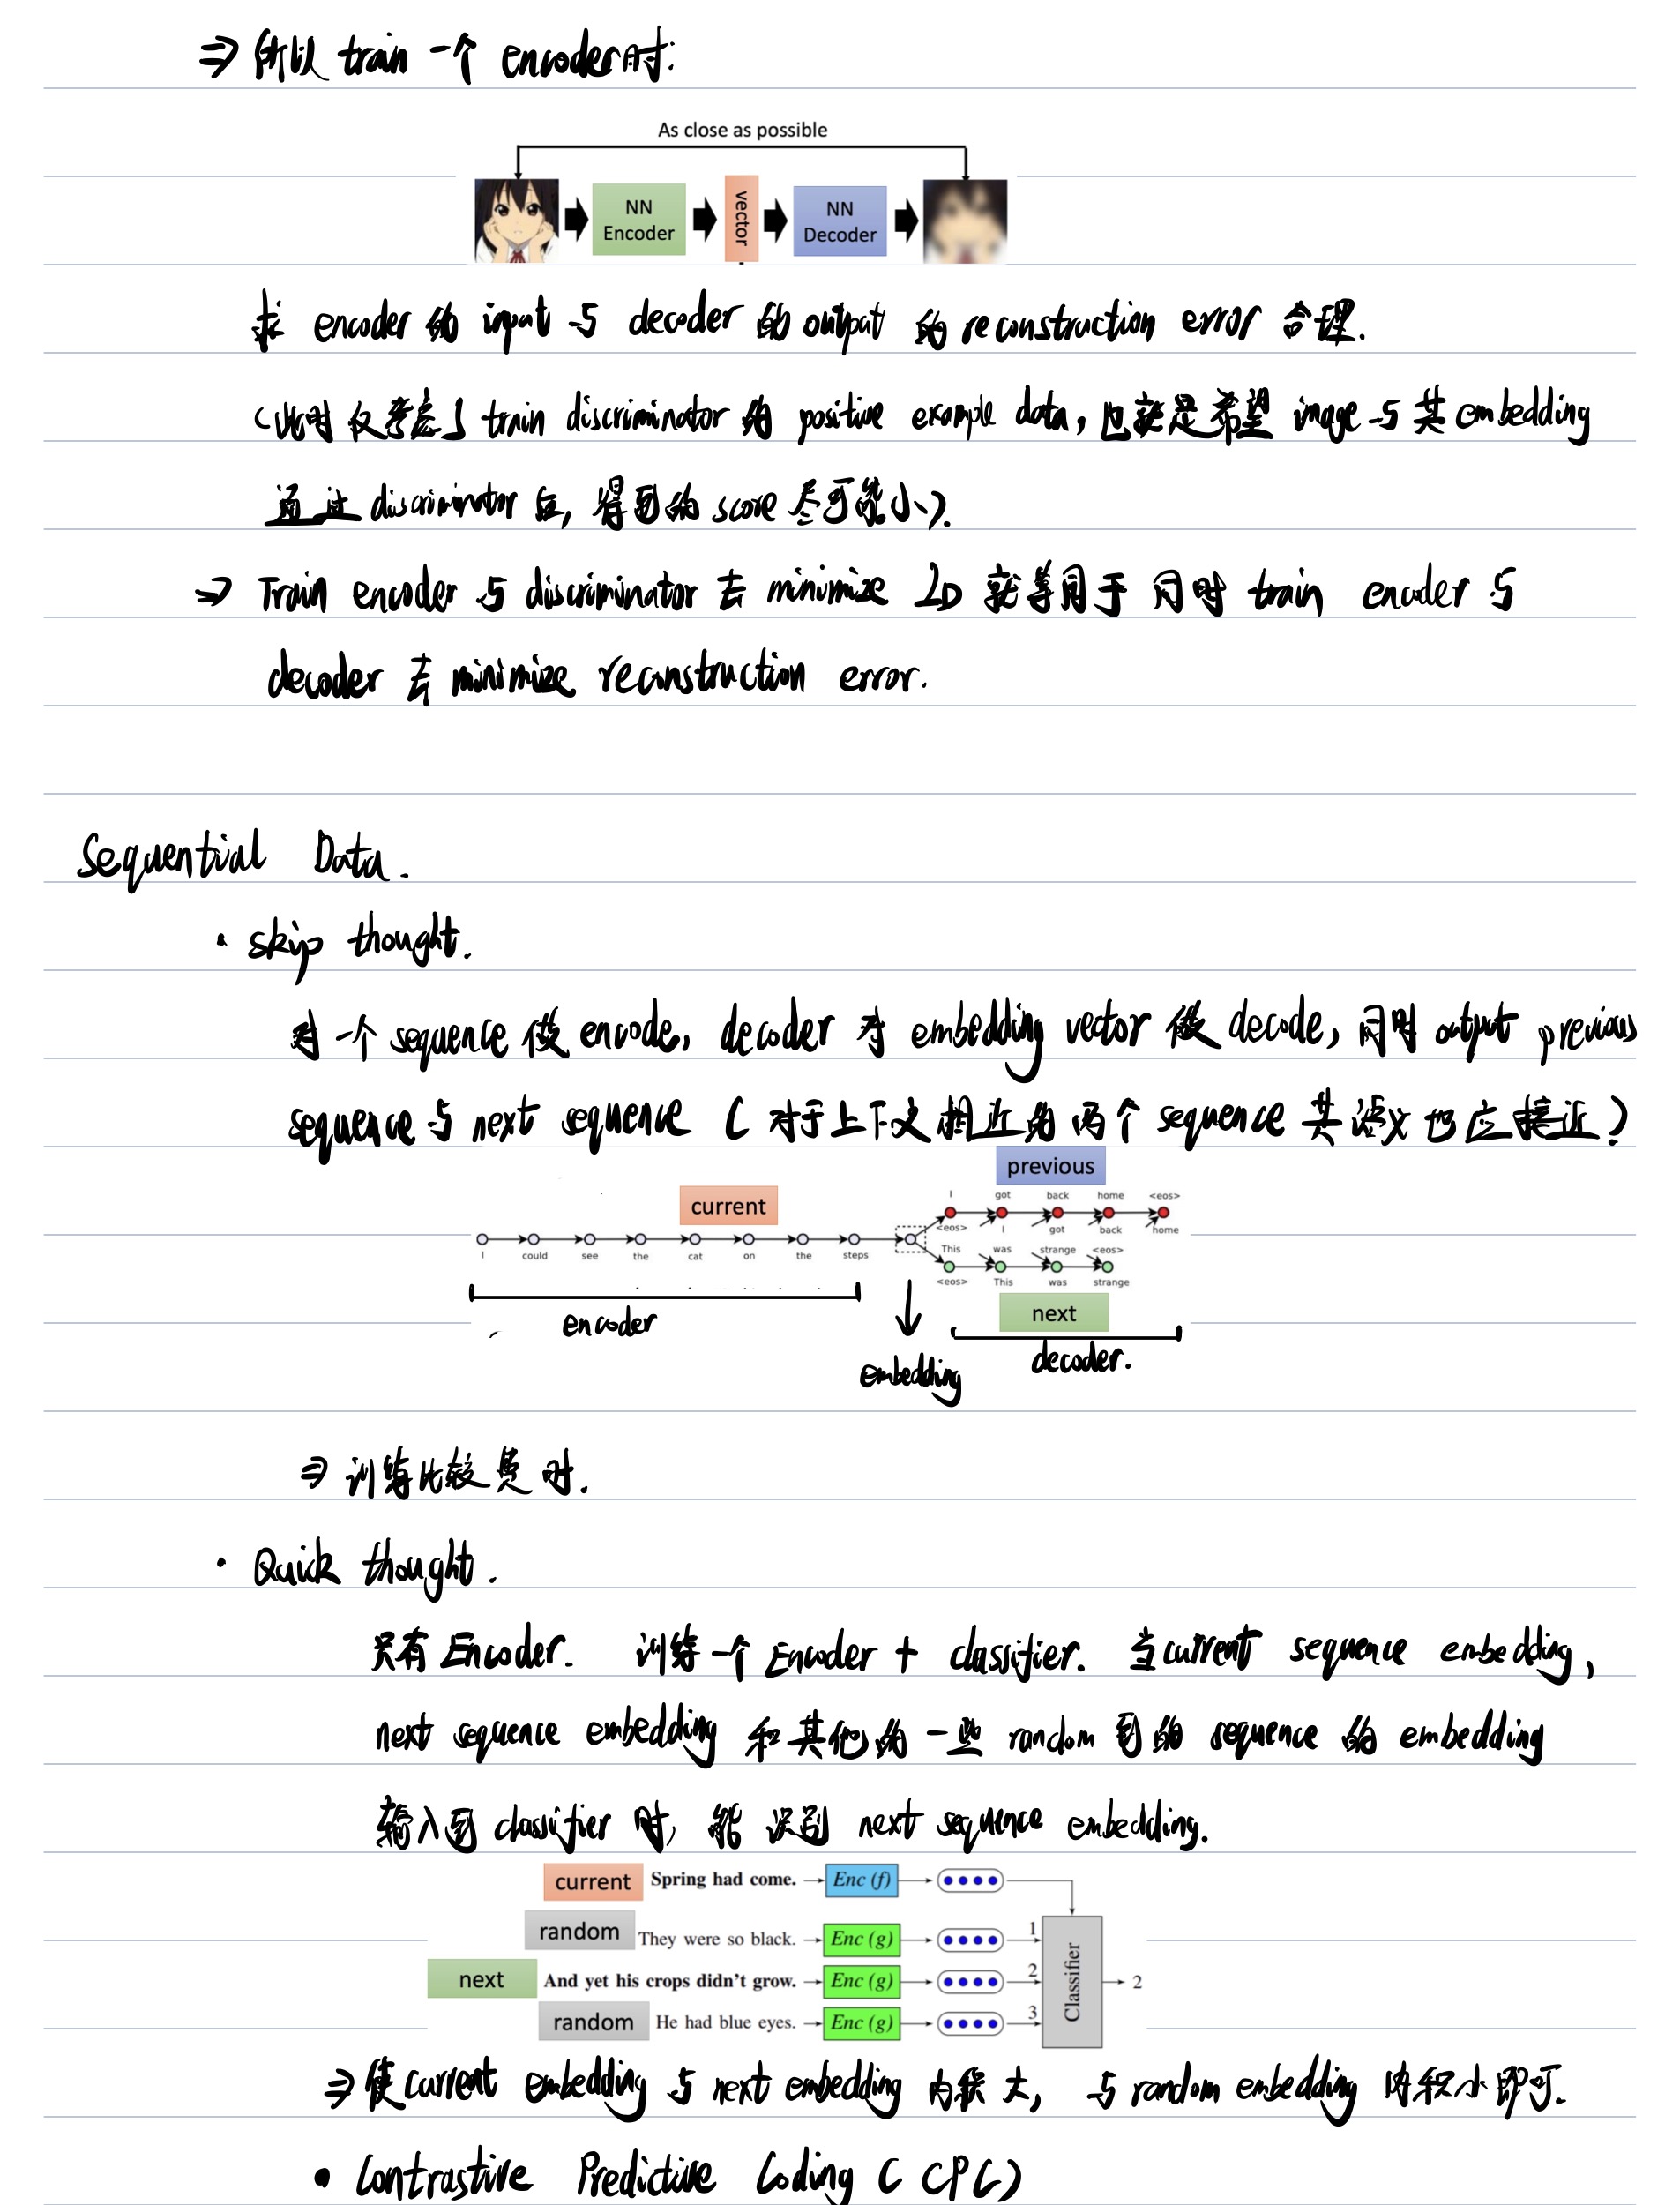 ⇒ 所以 train 一个 encoder时:
As close as possible
NN Encoder
vector
NN Decoder
求 encoder 的 input 与 decoder 的 output 的 reconstruction error 合理.
(此时 仅考虑了 train discriminator 的 positive example data, 也就是希望 image 与 其 embedding
通过 discriminator 后, 得到的 score 尽可能小).
⇒ Train encoder 与 discriminator 去 minimize LD 就等同于 同时 train encoder 与
decoder 去 minimize reconstruction error.
Sequential Data.
· skip thought.
对一个 sequence 做 encode, decoder 对 embedding vector 做 decode, 同时 output previous
sequence 与 next sequence ( 对于上下文相近的两个 sequence 其语义也应接近)
previous
current
I got back home <eos>
<eos> I got back home
I could see the cat on the steps
This was strange <eos>
<eos> This was strange
next
encoder
decoder.
embedding
⇒ 训练比较费时.
· Quick thought.
只有 Encoder. 训练一个 Encoder + classifier. 当current sequence embedding,
next sequence embedding 和其他的一些 random 到的 sequence 的 embedding
输入到 classifier 时, 能 识别 next sequence embedding.
current Spring had come. Enc (f)
random They were so black. Enc (g) 1
next And yet his crops didn't grow. Enc (g) 2 Classifier 2
random He had blue eyes. Enc (g) 3
⇒ 使current embedding 与 next embedding 内积 大, 与 random embedding 内积小即可.
• Contrastive Predictive Coding ( CPC)